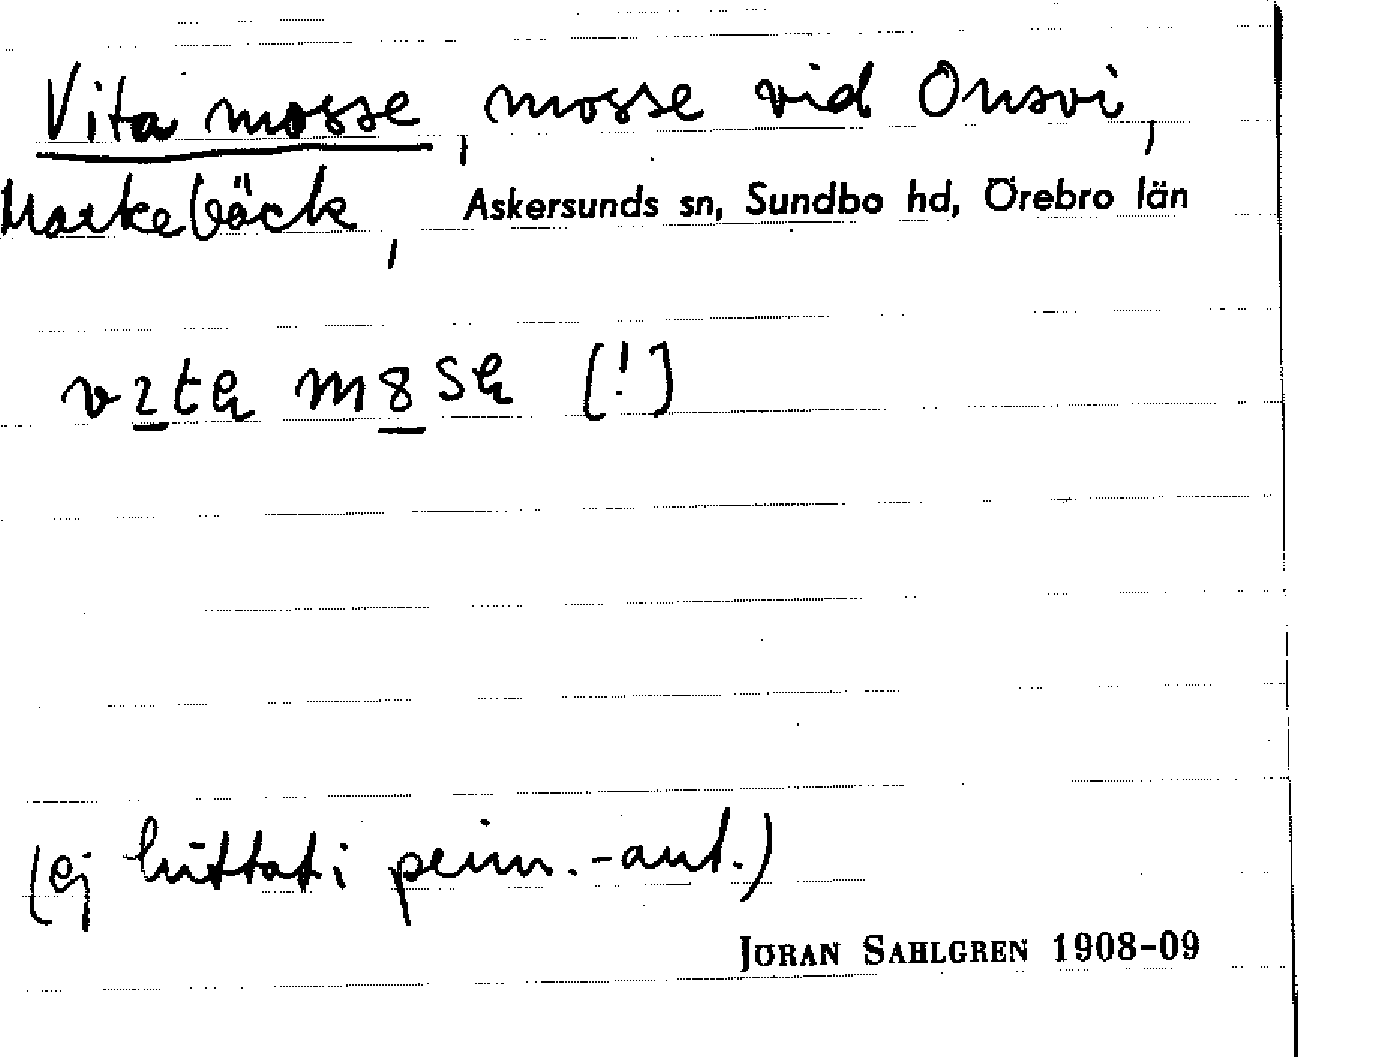 Vita mosse, mosse vid Onsvi,
Markebäck, Askersunds sn, Sundbo hd, Örebro län
v2te m8se [!]
(ej hittat i prim.-ant.)
JÖRAN SAHLGREN 1908-09